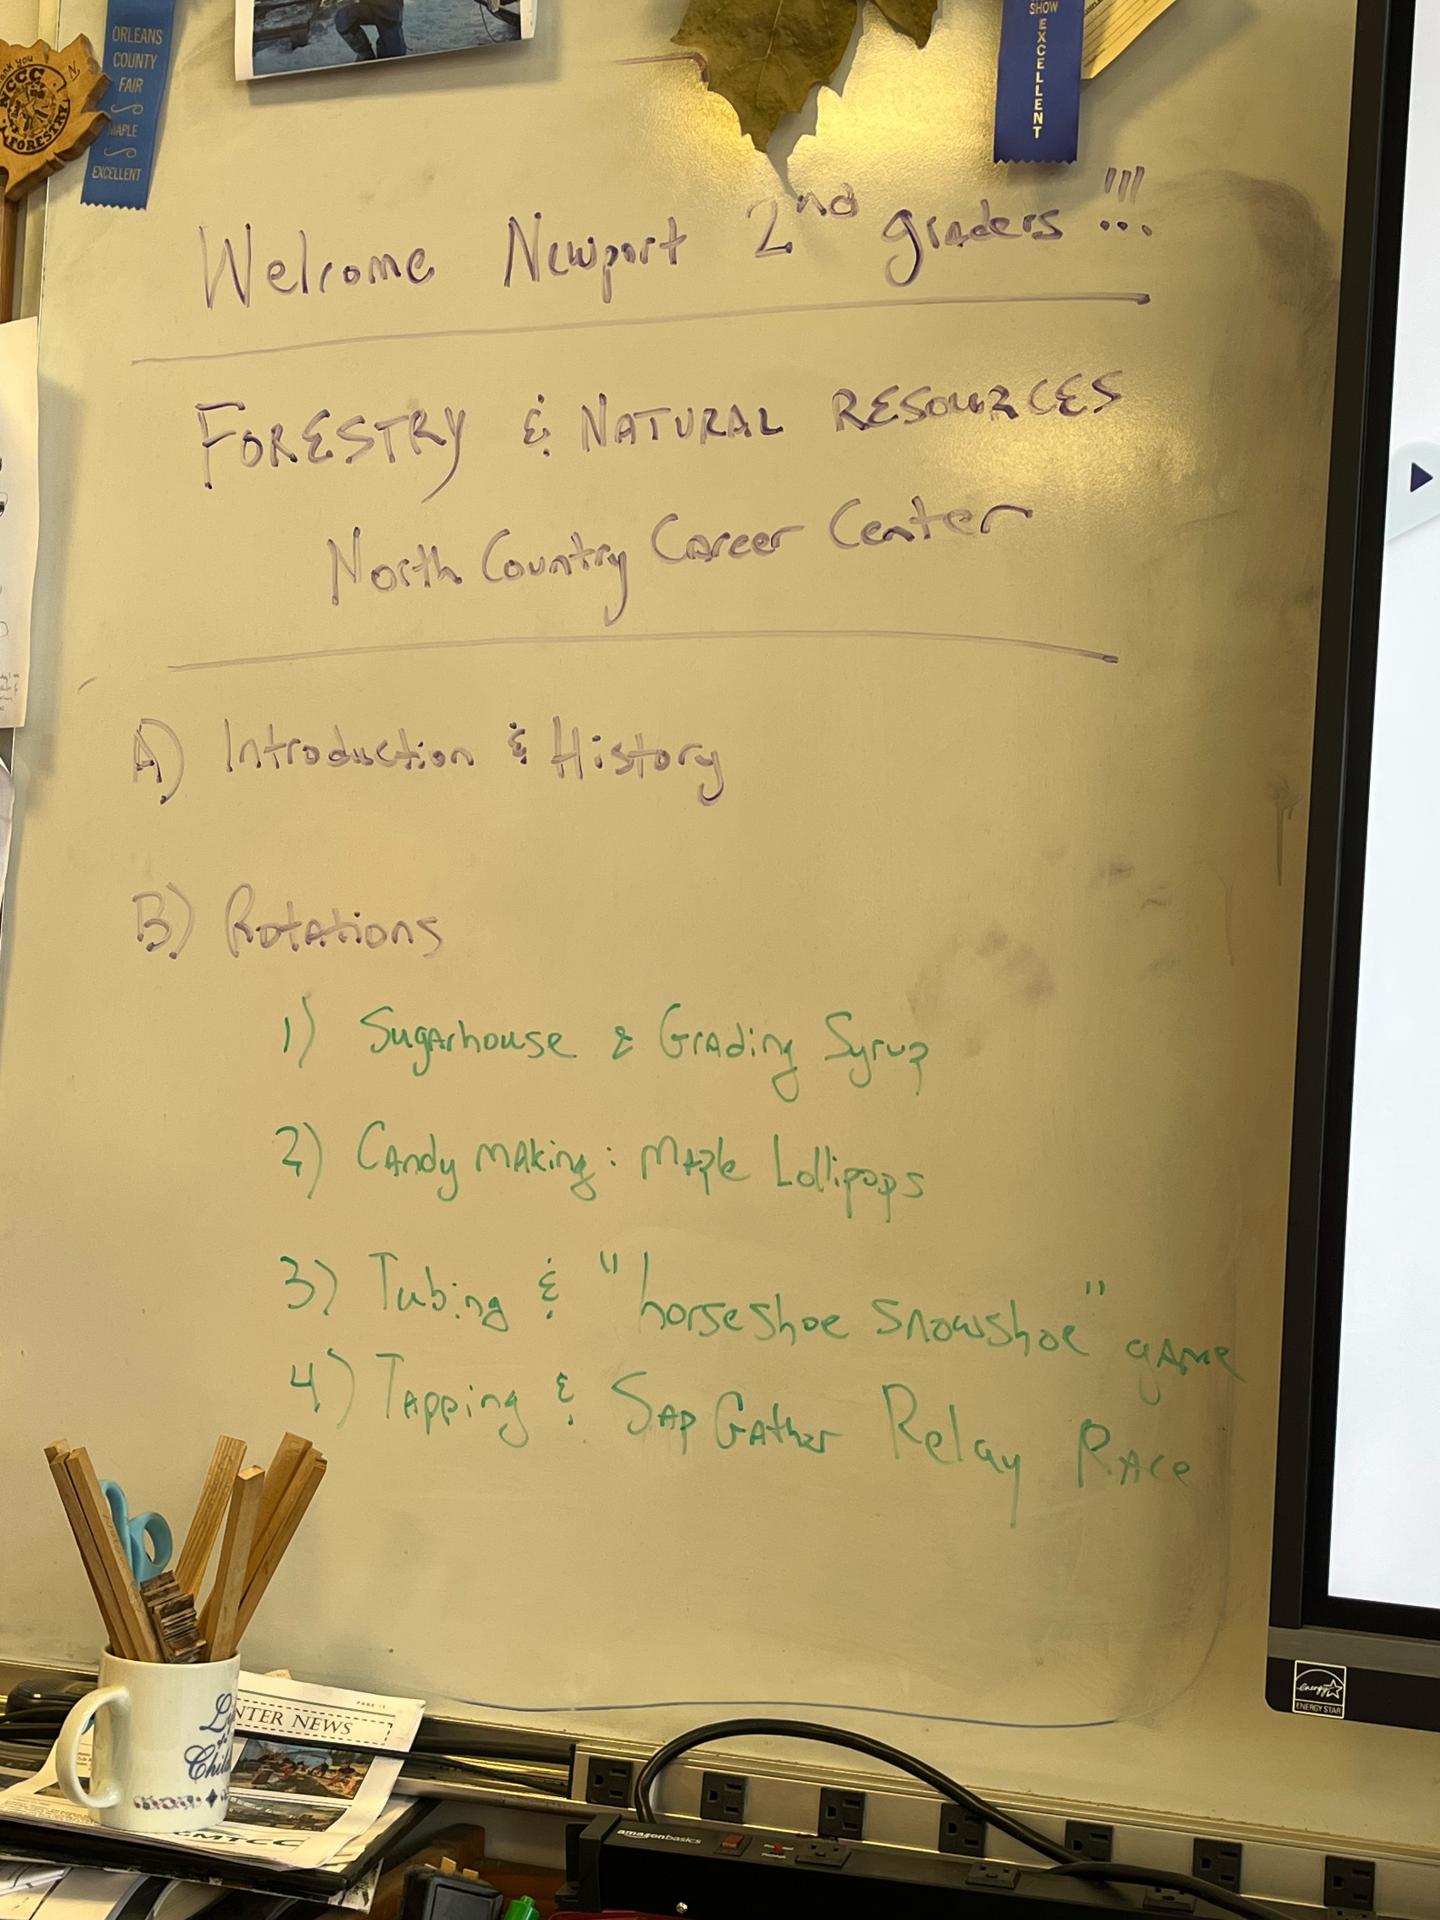 ORLEANS
COUNTY
FAIR
MAPLE
EXCELLENT
NCCC
FORESTRY
SHOW
EXCELLENT
Welcome Newport 2nd graders!!!
FORESTRY & NATURAL RESOURCES
North Country Career Center
A) Introduction & History
B) Rotations
1) Sugarhouse & Grading Syrup
2) Candy making: Maple Lollipops
3) Tubing & "horseshoe snowshoe" game
4) Tapping & Sap Gather Relay Race
NTER NEWS
MTCC
amazonbasics
energy
ENERGY STAR